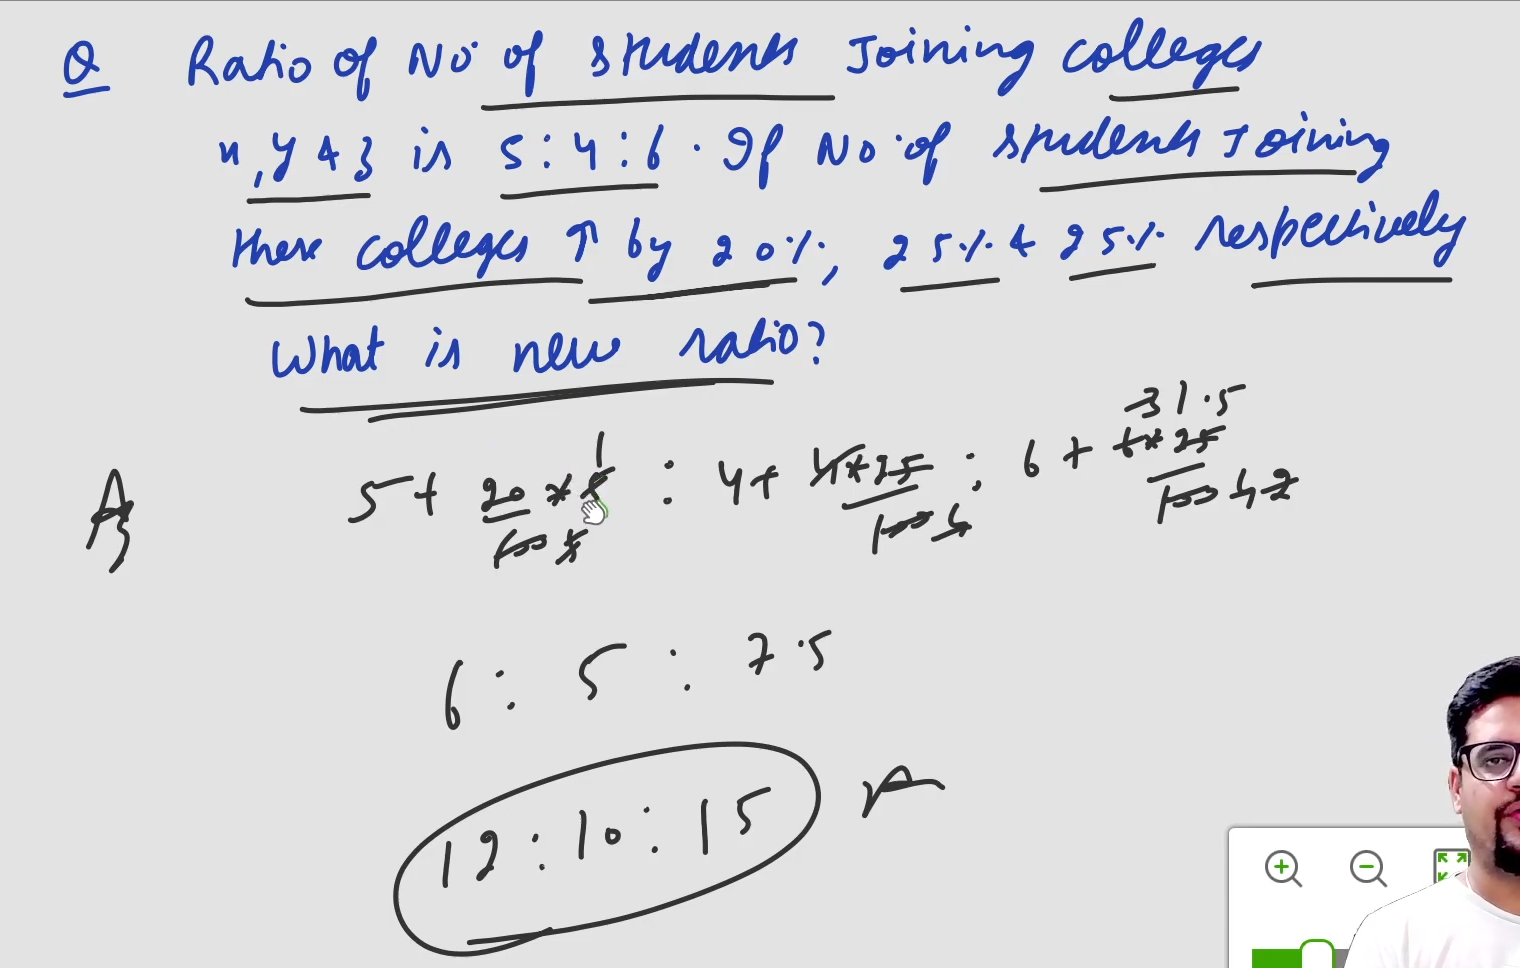 Q Ratio of No of students Joining colleges
x, y & z is 5:4:6. If No. of students Joining
these colleges ↑ by 20%, 25% & 25% respectively
What is new ratio?
A 5 + 20 * 5 / 100 : 4 + 4 * 25 / 100 : 6 + 6 * 25 / 100
6 : 5 : 7.5
12 : 10 : 15